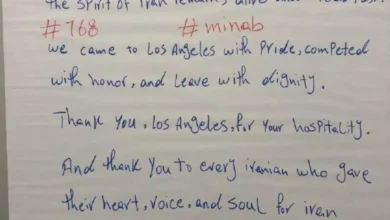 the spirit of Iran remains
#168 #minab
we came to Los Angeles with Pride, competed
with honor, and leave with dignity.
Thank you, Los Angeles, for your hospitality.
And thank you to every iranian who gave
their heart, voice, and soul for iran